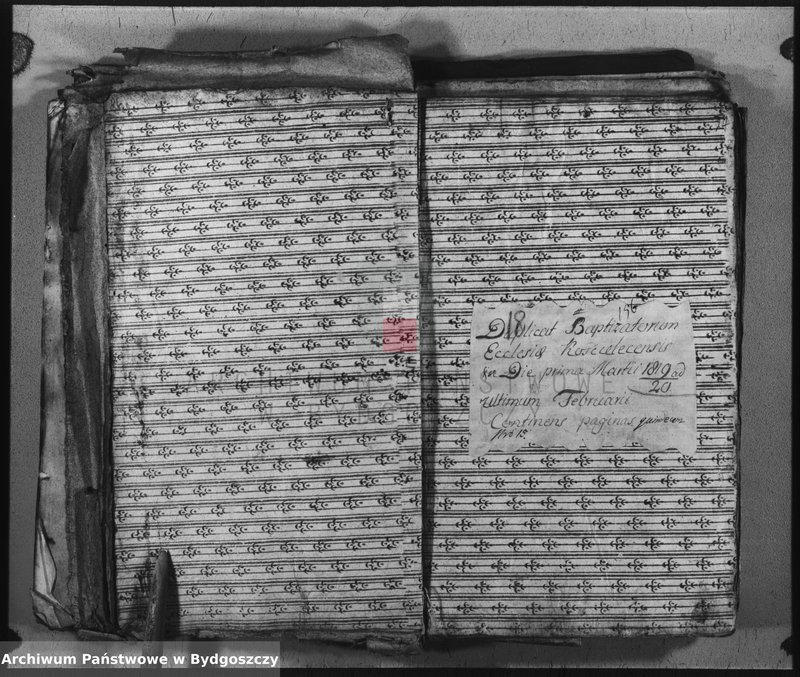 18
196
Duplicat Baptizatorum
Ecclesiæ Koscielecensis
Die prima Martii 1819 ad
20
ultimum Februarii
Continens paginas
Archiwum Państwowe w Bydgoszczy